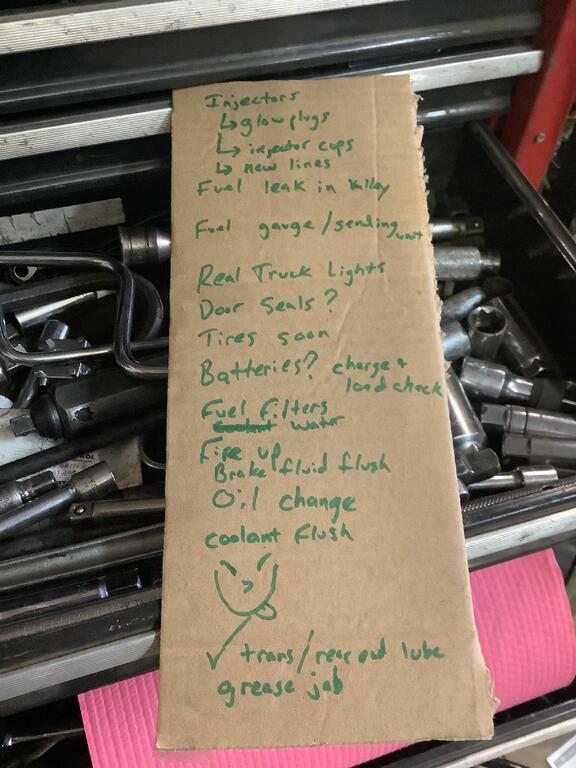 Injectors
↳ glow plugs
↳ injector cups
↳ new lines
Fuel leak in Valley
Fuel gauge/sending unit
Real Truck Lights
Door Seals?
Tires soon
Batteries? charge +
load check
Fuel Filters
Coolant water
Fire up
Brake fluid flush
Oil change
coolant flush
✓ trans/rear end lube
grease job